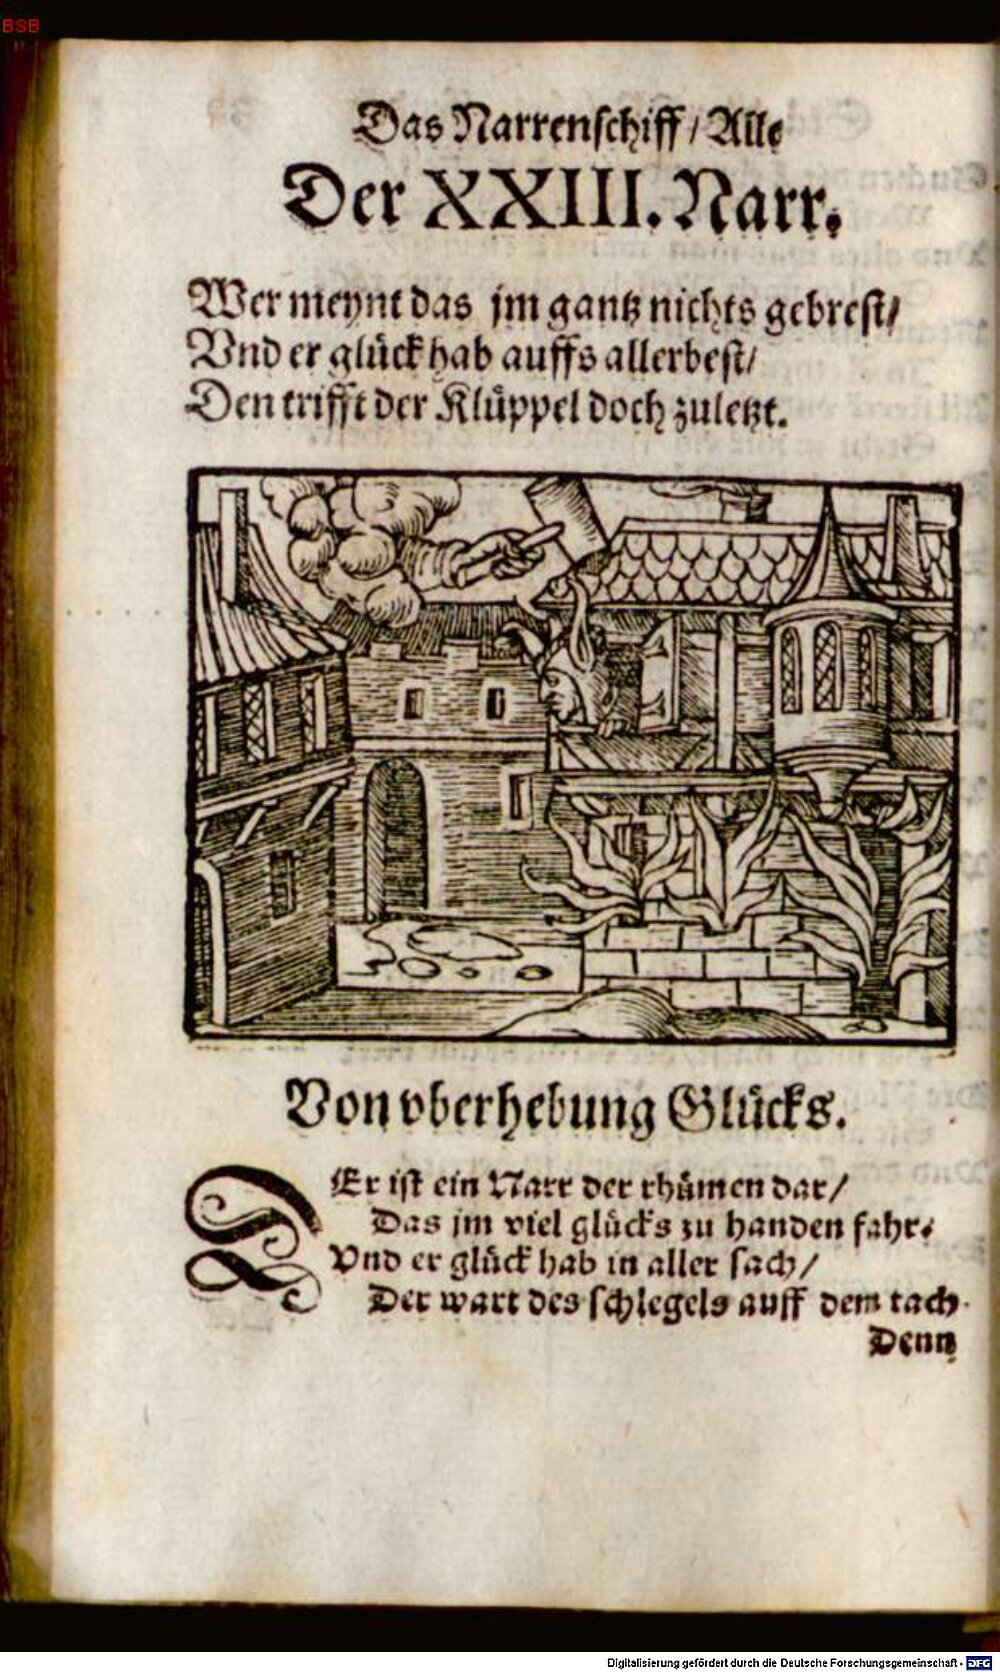 BSB
Das Narrenschiff / Alle
Der XXIII. Narr.
Wer meynt das jm gantz nichts gebrest /
Vnd er glück hab auffs allerbest /
Den trifft der Klüppel doch zuletzt.
Von vberhebung Glücks.
Er ist ein Narr der rhümen dar /
Das jm viel glücks zu handen fahr.
Vnd er glück hab in aller sach /
Der wart des schlegels auff dem tach.
Denn
Digitalisierung gefördert durch die Deutsche Forschungsgemeinschaft - DFG